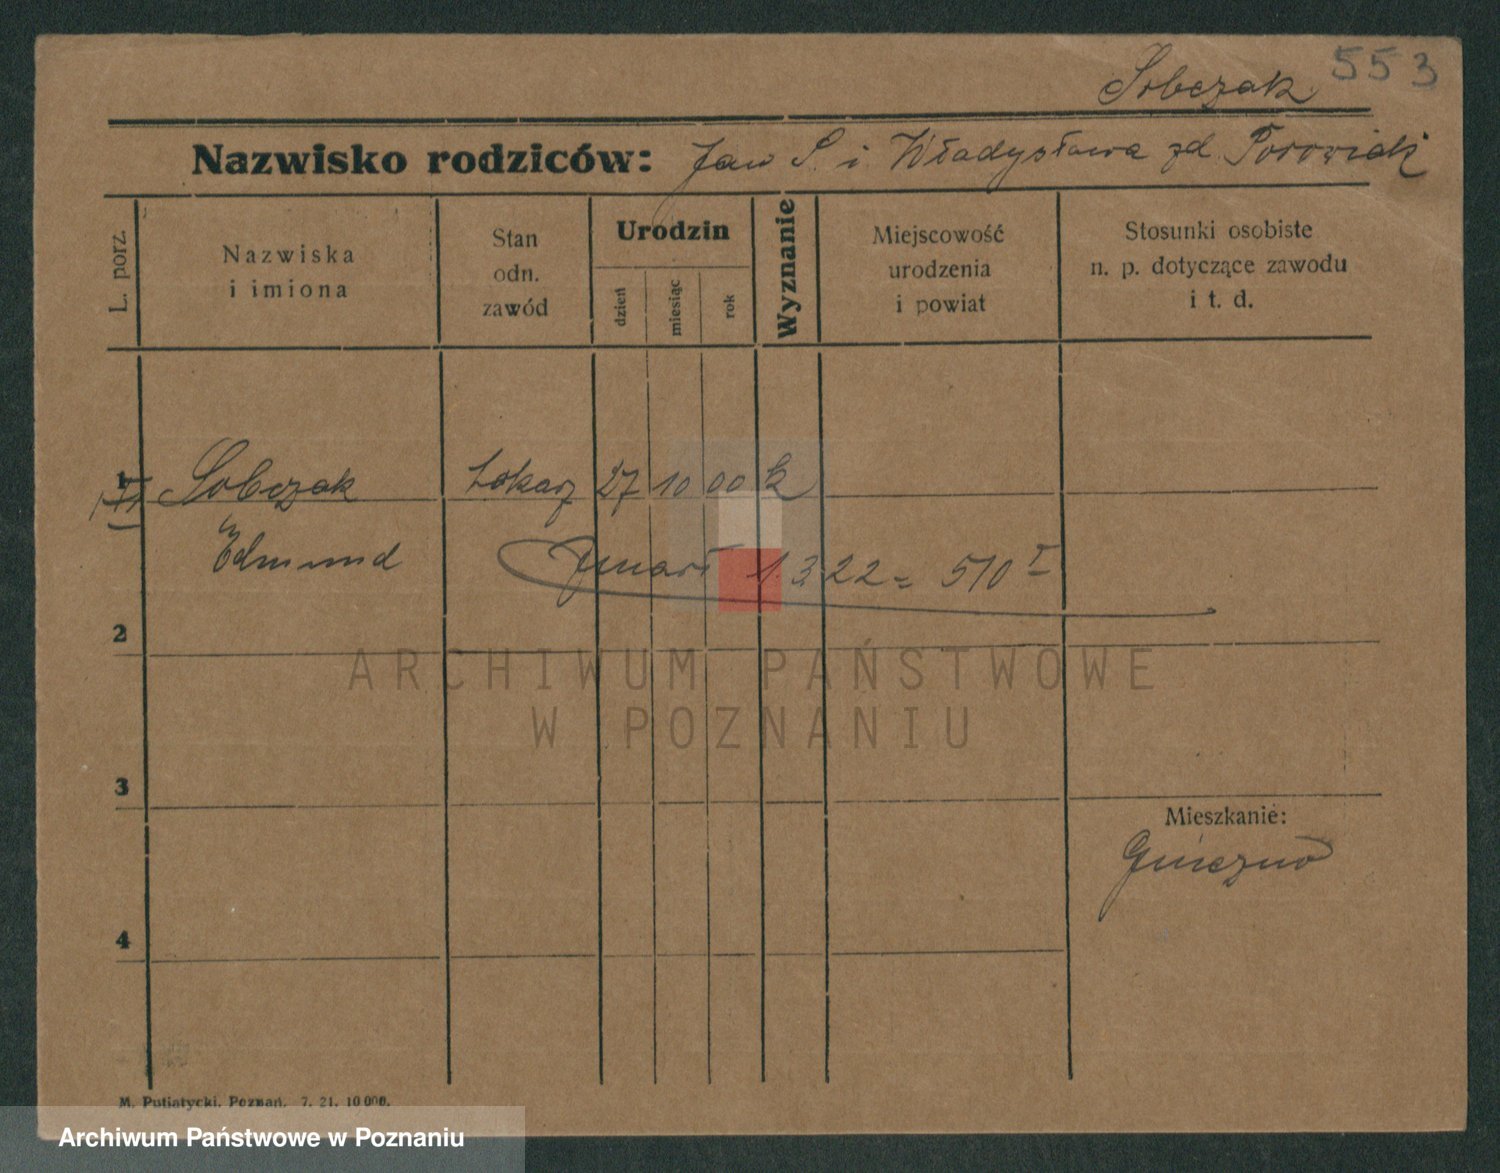 553
Sobczak
Nazwisko rodziców: Jan S. i Władysława zd
L. porz.
Nazwiska
i imiona
Stan
odn.
zawód
Urodzin
dzień
miesiąc
rok
Wyznanie
Miejscowość
urodzenia
i powiat
Stosunki osobiste
n. p. dotyczące zawodu
i t. d.
1 Sobczak 27 10 00 k
Edmund
zmarł 1.3.22 = 510 I
2
ARCHIWUM PAŃSTWOWE
W POZNANIU
3
Mieszkanie:
Gniezno
4
M. Putiatycki, Poznań. 7. 21. 10 000.
Archiwum Państwowe w Poznaniu